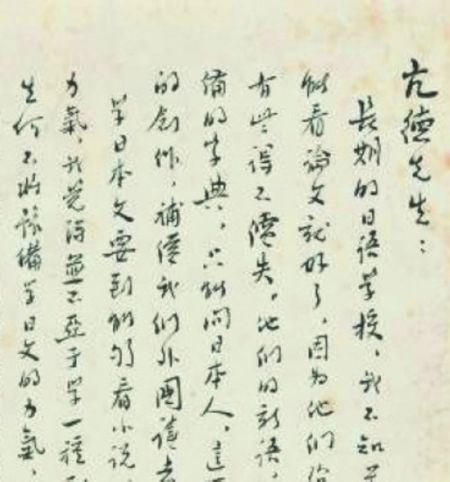 亢德先生：
長期的日語學校，我不知
能看論文就好了，因为他们
有些得不償失。他们的新語、
備的字典，只能问日本人，這
的創作，補償我们外國讀
學日本文要到能够看小说，
力氣，我覺得並不亞于學一種
生何不將豫備學日文的力氣，